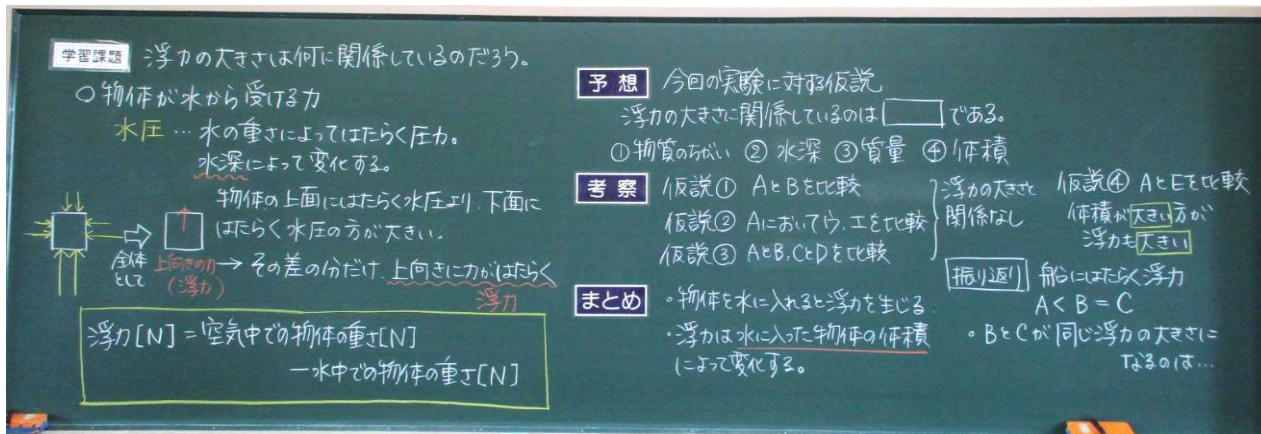 学習課題 浮力の大きさは何に関係しているのだろう。
○物体が水から受ける力
水圧…水の重さによってはたらく圧力。
水深によって変化する。
物体の上面にはたらく水圧より、下面に
はたらく水圧の方が大きい。
全体
として
上向きの力
(浮力)
→その差の分だけ、上向きに力がはたらく
浮力
浮力[N]=空気中での物体の重さ[N]
-水中での物体の重さ[N]
予想 今回の実験に対する仮説
浮力の大きさに関係しているのは□である。
①物質のちがい ②水深 ③質量 ④体積
考察 仮説① AとBを比較
仮説② Aにおいてウ、エを比較
仮説③ AとB、CとDを比較
浮力の大きさと
関係なし
仮説④ AとEを比較
体積が大きい方が
浮力も大きい
まとめ ・物体を水に入れると浮力を生じる。
・浮力は水に入った物体の体積
によって変化する。
振り返り 船にはたらく浮力
A<B=C
・BとCが同じ浮力の大きさに
なるのは…